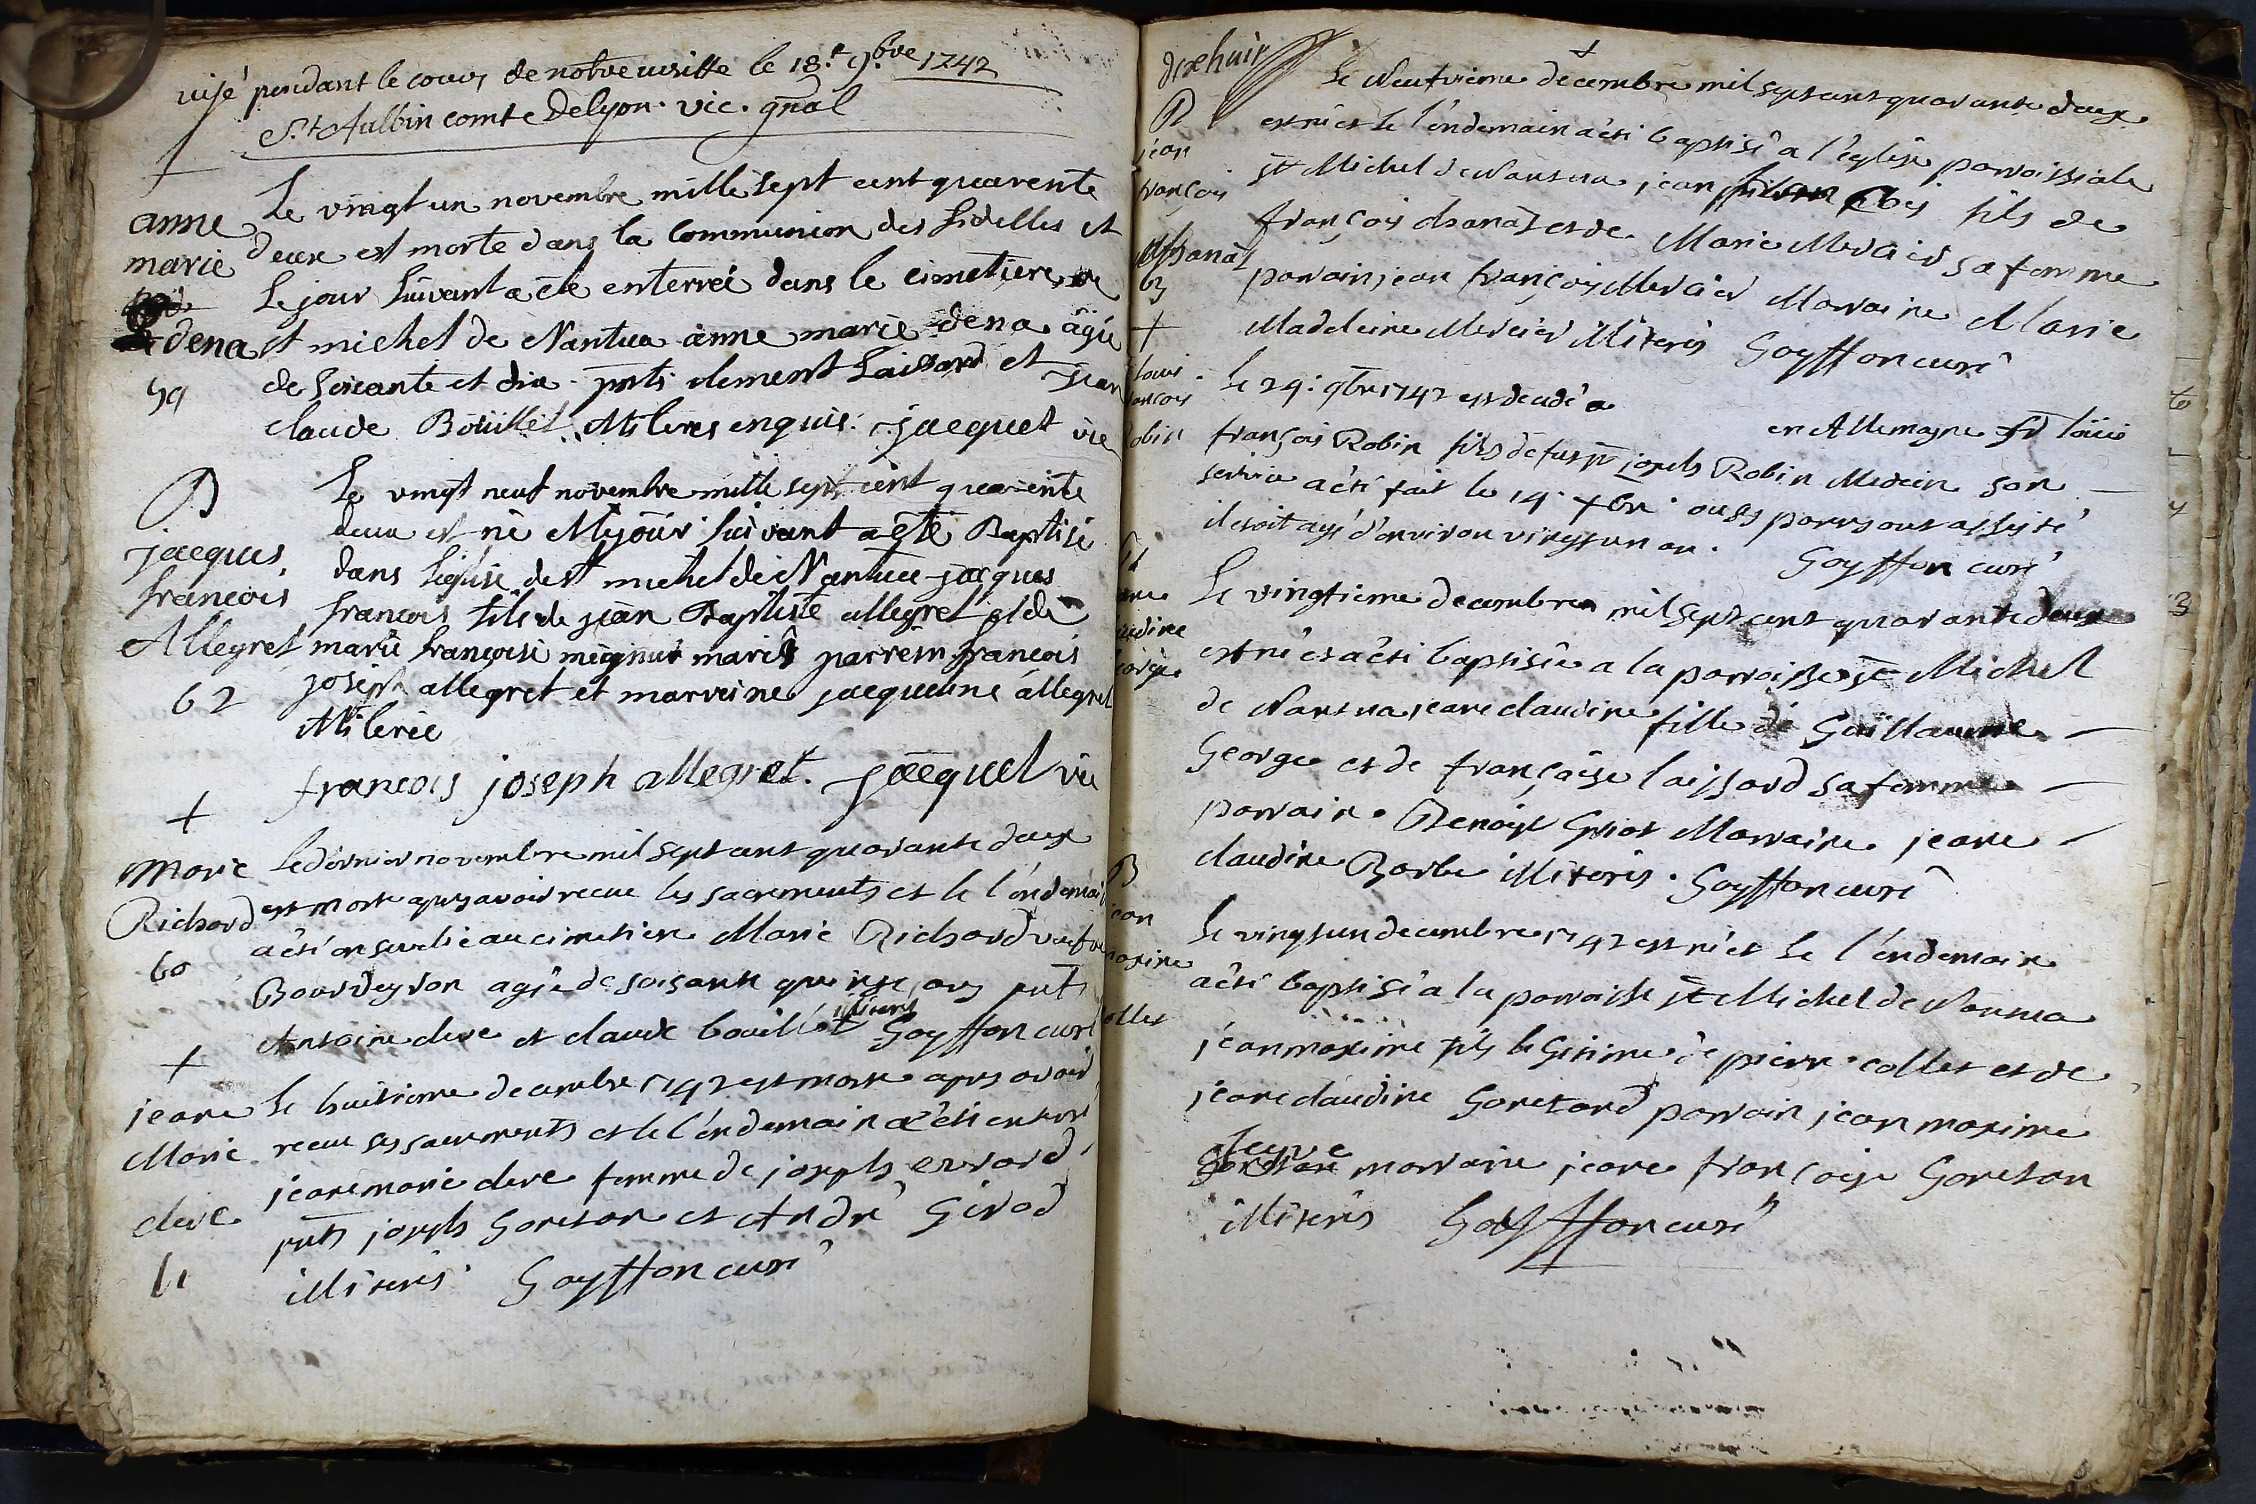 visé pendant le cours de notre visitte le 18.e 9.bre 1742
St Aulbin comte Delyon. vic. gnal
†
anne
marie
dena
59
Le vingt un novembre mille sept cent quarente
deux est morte dans la Communion des fidelles et
le jour suivant a été enterreé dans le cimetiere de
st michel de Nantua anne marie dena âgée
de soixante et dix. pnts clement Laissard et Jean
claude Bouillet illiteres enquis. jacquet vic
B
jacques
françois
Allegret
62
Le vingt neuf novembre mille sept cent quarente
deux est né et le jour suivant a été Baptisé
dans léglise de st michel de Nantua jacques
françois fils de jean Baptiste allegret et de
marie françoise mariés parrein françois
joseph allegret et marreine jacqueline allegret
illiterée
françois joseph allegret. jacquet vic
+
Marie
Richard
60
Le dernier novembre mil sept cent quarante deux
est morte apres avoir recue les sacrements et le l'endemain
a été ensevelie au cimetiere Marie Richard veufve
Bourdeyron agée de soisante quinse ans pnts
Antoine deve et claude bouillet illiterés Goyffon curé
+
jeane
Marie
deve
61
Le huitieme decembre 1742 est morte apres avoir
recue ses sacrements et le l'endemain a été enterré
jeane marie deve femme de joseph evrard
pnts joseph Goretan et André Girod
illiterés. Goyffon curé
dixhuit
+
B
jean
françois
chanal
63
Le Neufvieme decembre mil sept cent quarante deux
est né et le l'endemain a été baptisé a l'eglise parroissiale
st Michel de Nantua jean françois fils de
françois chanal et de Marie Mercier sa femme
parrain jean françois Mercier Marraine Marie
Madeleine Mercier illiterés Goyffon curé
+
louis
françois
Robin
Le 29. 9bre 1742 est decedé a
en Allemagne sr loüis
françois Robin fils de fut sr joseph Robin Medecin son
service a été fait le 14. xbre ou ses parens ont assisté
il etoit agé d'environ vingt un an. Goyffon curé
jeane
claudine
George
Le vingtieme decembre mil sept cent quarante deux
est né et a été baptisée a la parroisse st Michel
de Nantua jeane claudine fille de Guillaume
George et de françoise laissard sa femme
parrain Benoist Griot Marraine jeane
claudine Barbe illiterés. Goyffon curé
B
jean
maxime
collet
Le vingt un decembre 1742 est né et le l'endemain
a été baptisé a la parroisse st Michel de Nantua
jean maxime fils legitime de pierre collet et de
jeane claudine Goretand parrain jean maxime
marraine jeane françoise Goretan
illiterés Goyffon curé